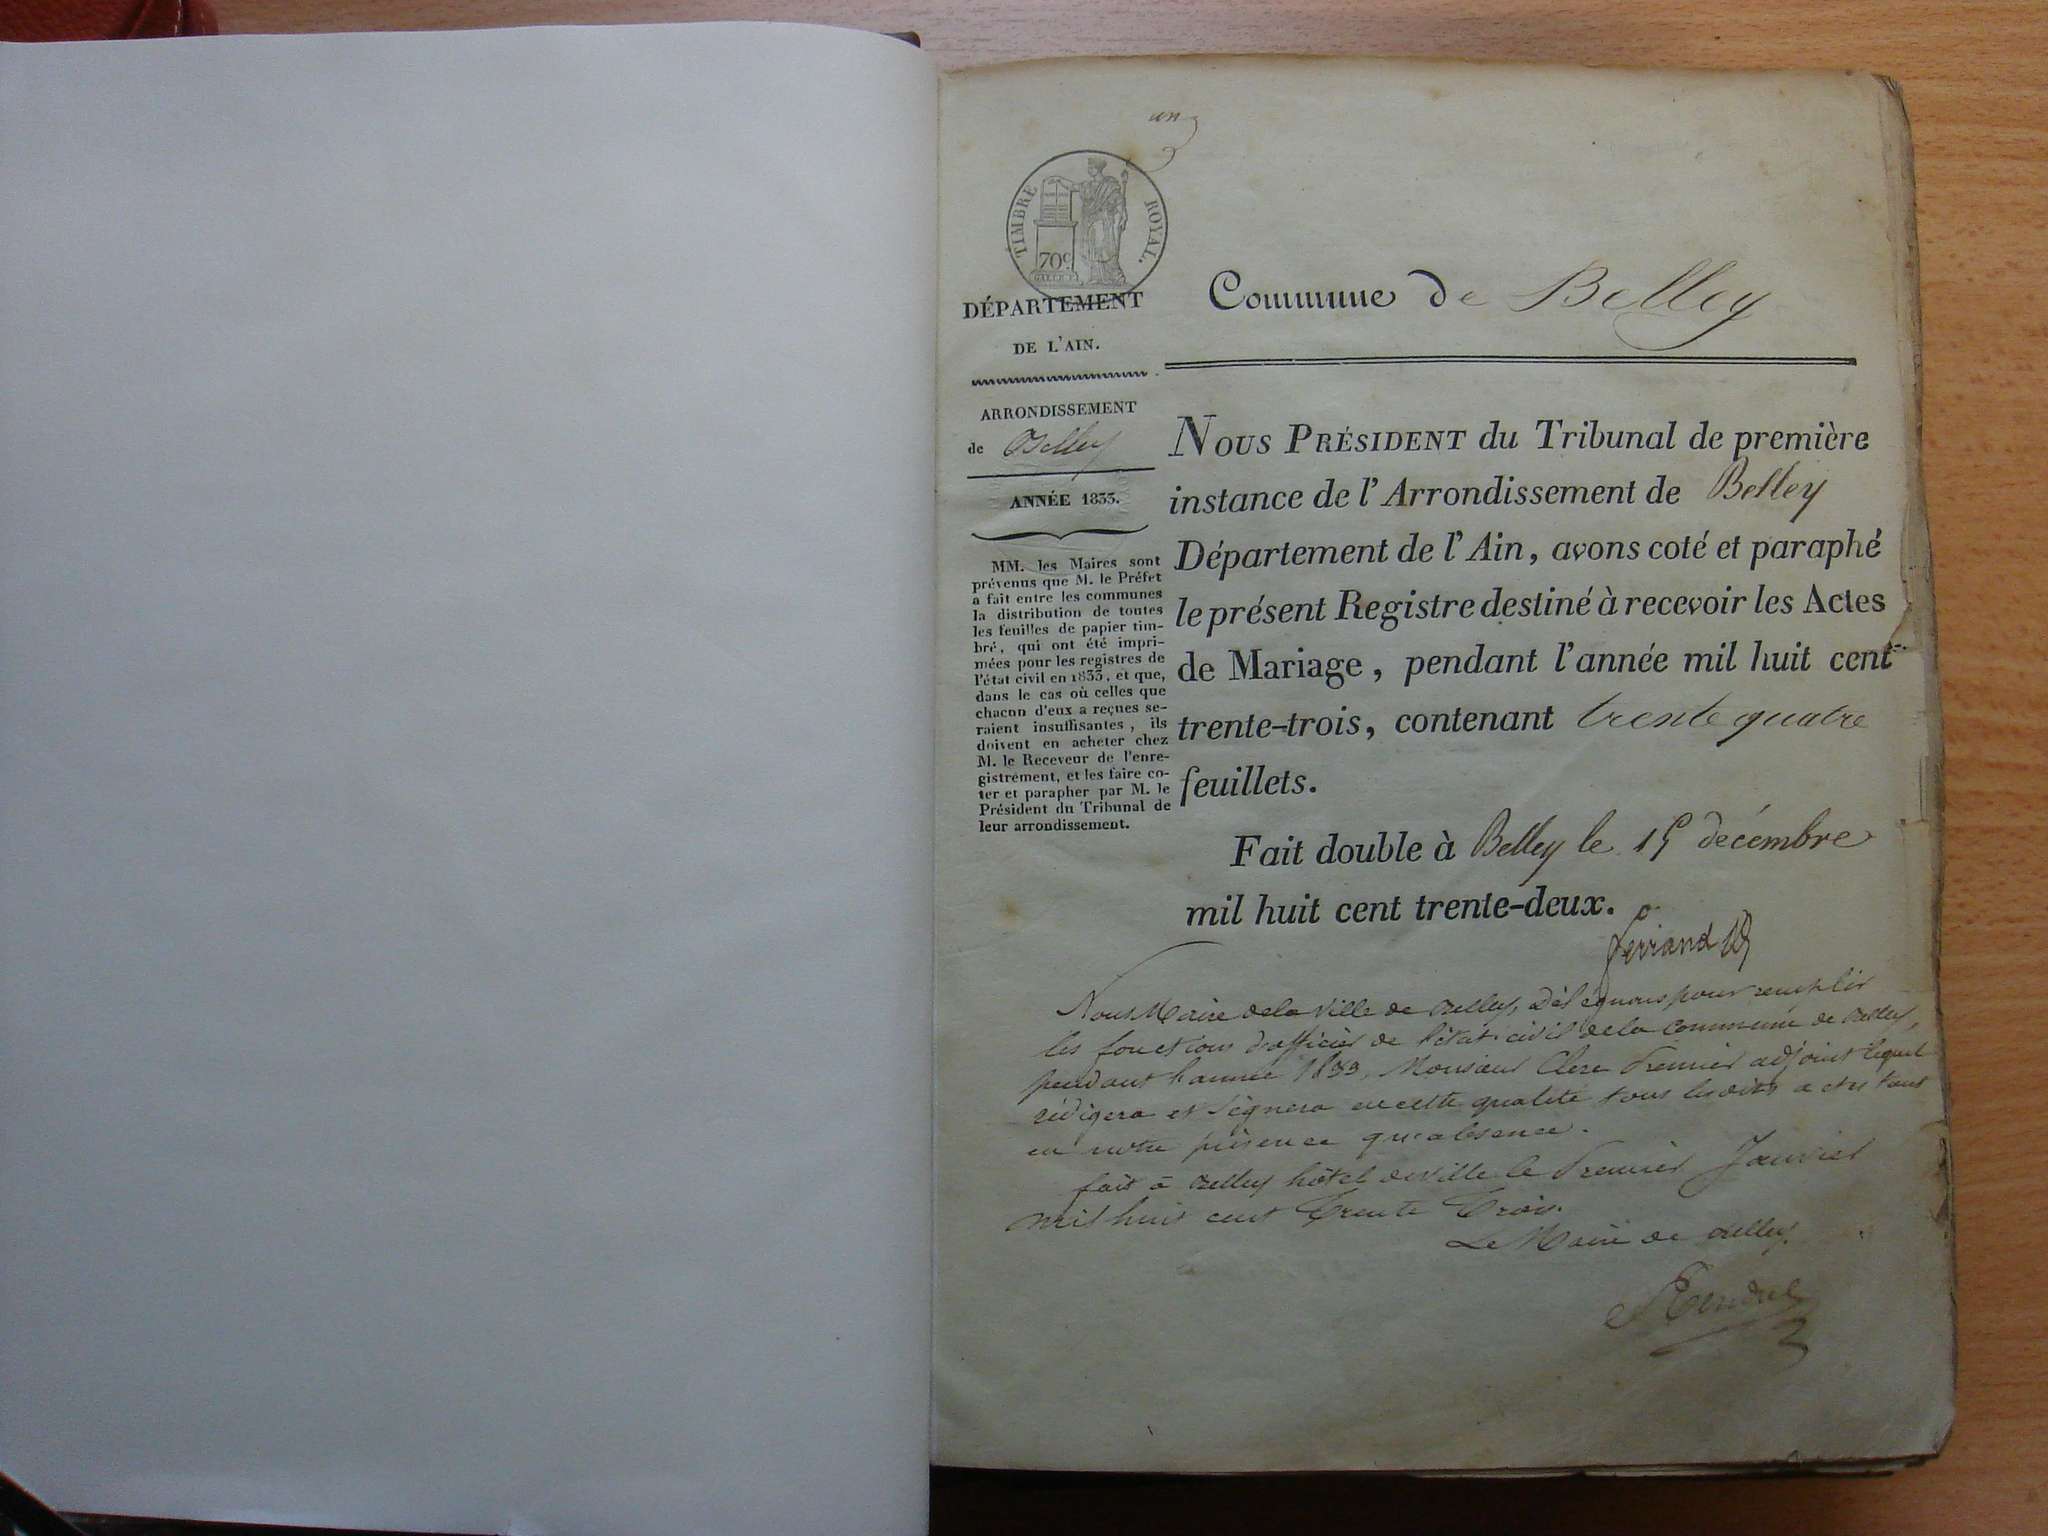 un
TIMBRE ROYAL.
70 c
DÉPARTEMENT
DE L'AIN.
ARRONDISSEMENT
de Belley
ANNÉE 1833.
MM. les Maires sont
prévenus que M. le Préfet
a fait entre les communes
la distribution de toutes
les feuilles de papier tim-
bré, qui ont été impri-
mées pour les registres de
l'état civil en 1833, et que,
dans le cas où celles que
chacun d'eux a reçues se-
raient insuffisantes, ils
doivent en acheter chez
M. le Receveur de l'enre-
gistrement, et les faire co-
ter et parapher par M. le
Président du Tribunal de
leur arrondissement.
Commune de Belley
NOUS PRÉSIDENT du Tribunal de première
instance de l'Arrondissement de Belley
Département de l'Ain, avons coté et paraphé
le présent Registre destiné à recevoir les Actes
de Mariage, pendant l'année mil huit cent
trente-trois, contenant trente quatre
feuillets.
Fait double à Belley le 15 décembre
mil huit cent trente-deux.
ferrand
Nous Maire de la Ville de Belley, Déléguons pour remplir
les fonctions d'officier de l'état civil de la Commune de Belley,
pendant l'année 1833, Monsieur Clerc Premier adjoint lequel
rédigera et Signera en cette qualité tous lesdits actes tant
en notre présence qu'absence.
fait à Belley hôtel de Ville le Premier Janvier
mil huit cent Trente Trois.
Le Maire de Belley.
Tendret